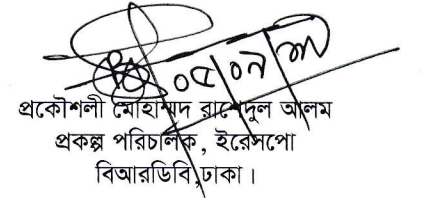 ০৫/০৯/
প্রকৌশলী মোহাম্মদ রাশেদুল আলম
প্রকল্প পরিচালক, ইরেসপো
বিআরডিবি,ঢাকা।